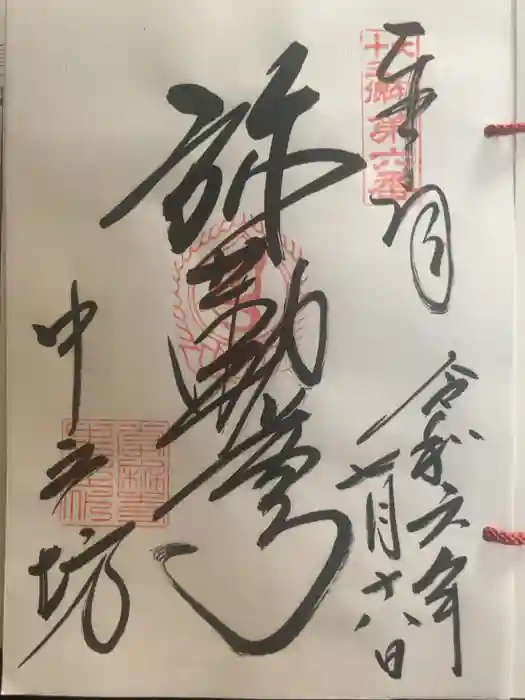 奉拝
大和十三佛第六番
令和六年
七月十八日
弥勒尊
中之坊